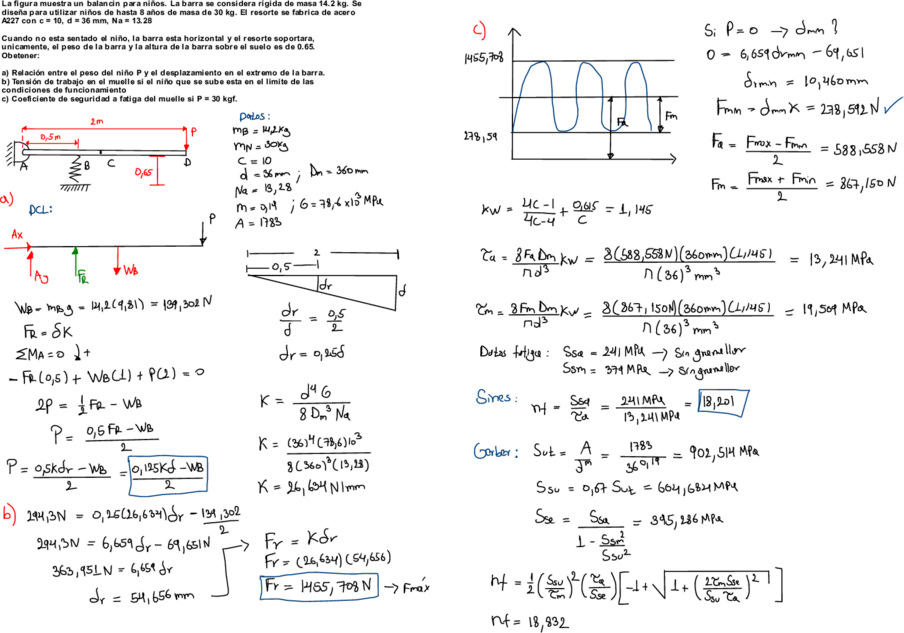 La figura muestra un balancin para niños. La barra se considera rígida de masa 14.2 kg. Se
diseña para utilizar niños de hasta 8 años de masa de 30 kg. El resorte se fabrica de acero
A227 con c = 10, d = 36 mm, Na = 13.28
Cuando no esta sentado el niño, la barra esta horizontal y el resorte soportara,
unicamente, el peso de la barra y la altura de la barra sobre el suelo es de 0.65.
Obetener:
a) Relación entre el peso del niño P y el desplazamiento en el extremo de la barra.
b) Tensión de trabajo en el muelle si el niño que se sube esta en el limite de las
condiciones de funcionamiento
c) Coeficiente de seguridad a fatiga del muelle si P = 30 kgf.
2m
P
0,5m
A
B
C
D
0,65
Datos:
mB = 14,2kg
mN = 30kg
C = 10
d = 36mm ; Dm = 360mm
Na = 13,28
m = 0,19 ; G = 78,6x10³ MPa
A = 1783
a)
DCL:
Ax
Ay
FR
WB
P
2
0,5
dr
d
WB = mB g = 14,2(9,81) = 139,302N
FR = δK
ΣMA = 0 ↓+
-FR(0,5) + WB(1) + P(2) = 0
2P = 1/2 FR - WB
P = (0,5FR - WB)/2
P = (0,5kdr - WB)/2 = (0,125Kd - WB)/2
dr/d = 0,5/2
dr = 0,25d
K = d⁴G/(8Dm³Na)
K = (36)⁴(78,6)10³/(8(360)³(13,28))
K = 26,634N/mm
b) 294,3N = 0,25(26,634)dr - 139,302/2
294,3N = 6,659dr - 69,651N
363,951N = 6,659dr
dr = 54,656mm
Fr = Kdr
Fr = (26,634)(54,656)
Fr = 1455,708N → Fmáx
c)
1455,708
278,59
Fa
Fm
Si P = 0 → dmn?
0 = 6,659drmn - 69,651
drmn = 10,460mm
Fmn = dmn K = 278,592N ✓
Fa = (Fmax - Fmn)/2 = 588,558N
Fm = (Fmax + Fmin)/2 = 867,150N
KW = (4C-1)/(4C-4) + 0,615/C = 1,145
τa = 8FaDm/(πd³) KW = 8(588,558N)(360mm)(1,145)/(π(36)³mm³) = 13,241MPa
τm = 8FmDm/(πd³) KW = 8(867,150N)(360mm)(1,145)/(π(36)³mm³) = 19,509MPa
Datos fatiga: Ssa = 241MPa → Sin granellar
Ssm = 379MPa → Sin granellar
Sines: nf = Ssa/τa = 241MPa/13,241MPa = 18,201
Gerber: Sut = A/d^m = 1783/36^0,19 = 902,514MPa
Ssu = 0,67 Sut = 604,684MPa
Sse = Ssa/(1 - Ssm²/Ssu²) = 395,286MPa
nf = 1/2 (Ssu/τm)² (τa/Sse) [-1 + √(1 + (2τmSse/(Ssuτa))²)]
nf = 18,832